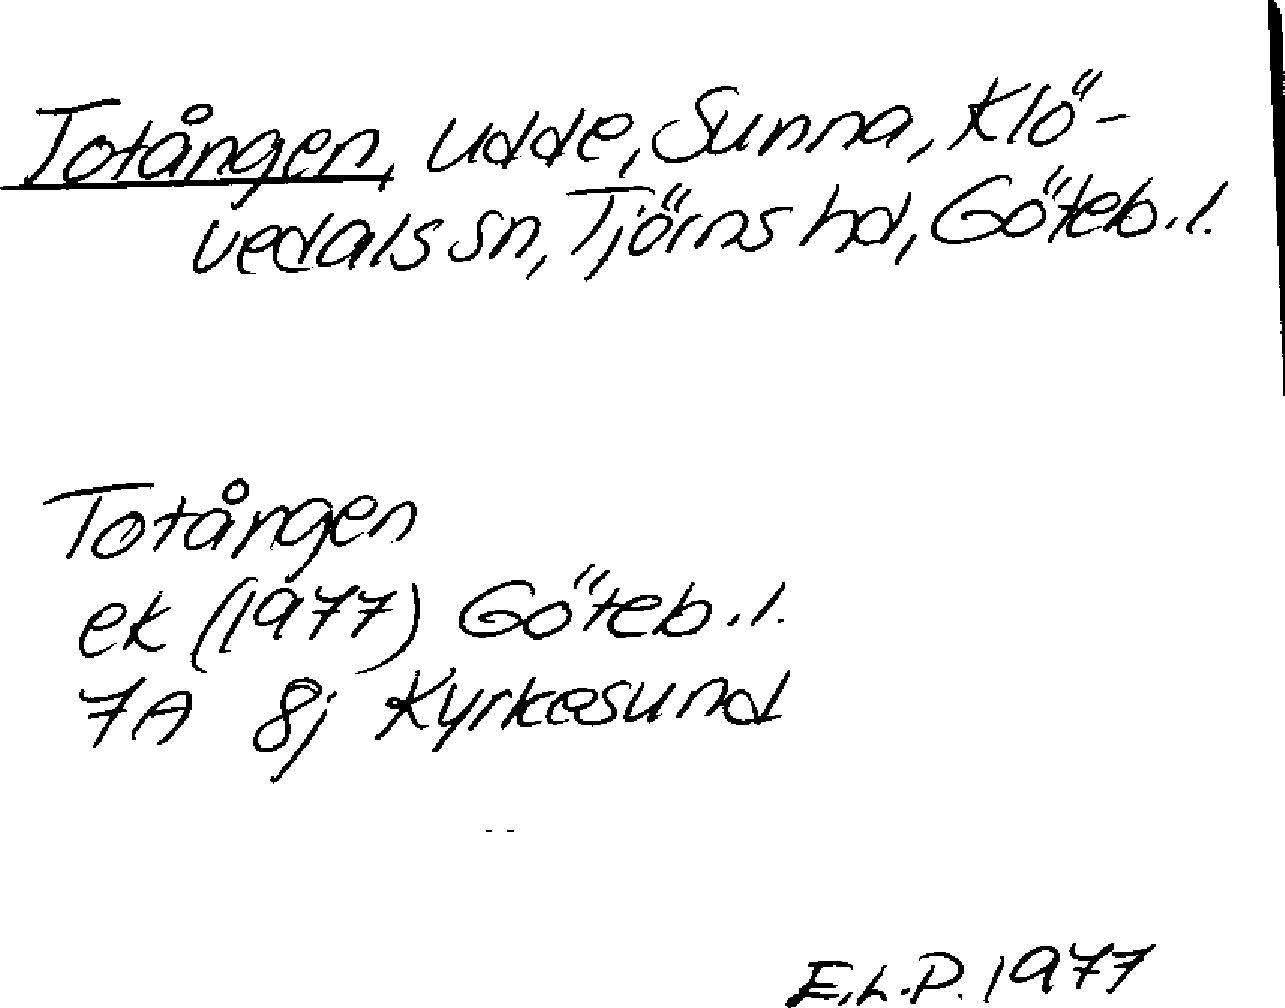 Totången, udde, Sunna, Klö-
vedals sn, Tjörns hd, Göteb.l.
Totången
ek (1977) Göteb.l.
7A 8j Kyrkesund
E.L.P. 1977